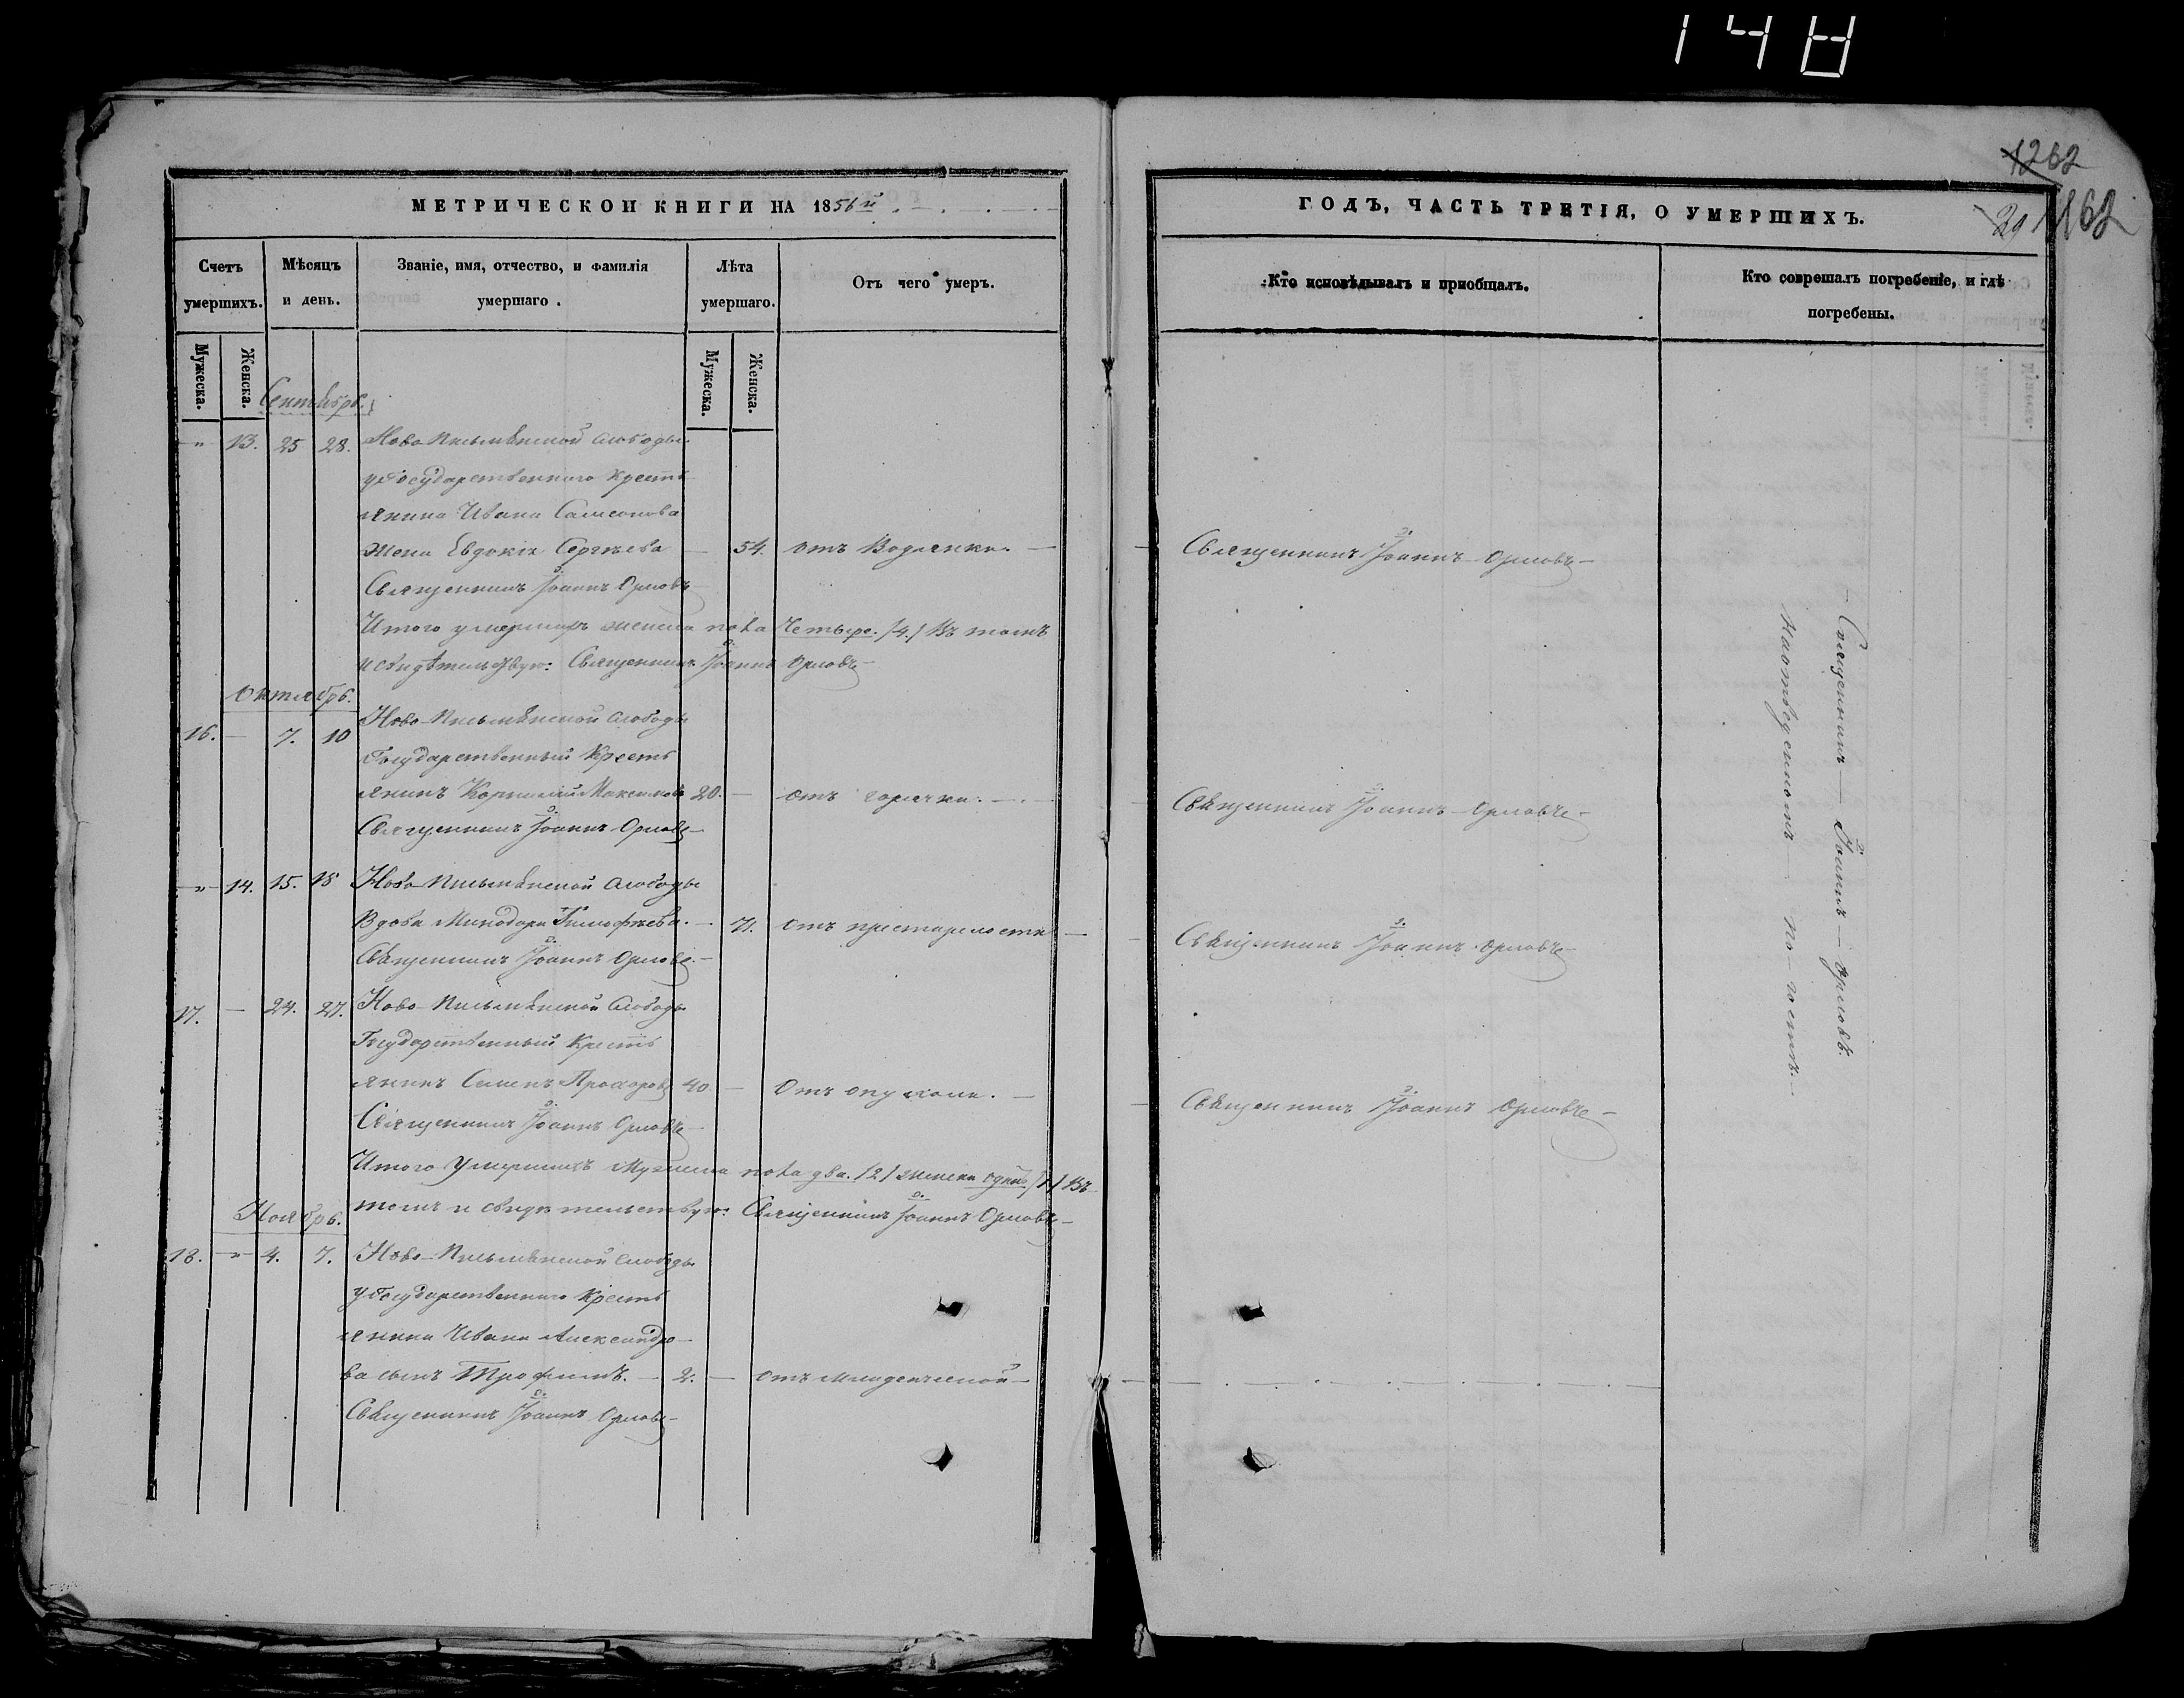 148
1262
29 1162
МЕТРИЧЕСКОЙ КНИГИ НА 1856й
ГОДЪ, ЧАСТЬ ТРЕТІЯ, О УМЕРШИХЪ.
Счетъ умершихъ.
Мѣсяцъ и день.
Званіе, имя, отчество, и фамилія умершаго.
Лѣта умершаго.
Отъ чего умеръ.
Кто исповѣдывалъ и приобщалъ.
Кто соврешалъ погребеніе, и гдѣ погребены.
Мужеска. Женска.
Мужеска. Женска.
Сентябрь.
" 13. 25 28. Ново Письмянской слободы
у Государственнаго Кресть
янина Ивана Самсонова
жена Евдокія Сергѣева — 54. отъ Водянки. — Священникъ Іоаннъ Орловъ
Священникъ Іоаннъ Орловъ
Итого умершихъ женска пола Четыре. /4./ Въ томъ
и свидѣтельствую: Священникъ Іоаннъ Орловъ
Октябрь.
16. — 7. 10 Ново-Письмянской слободы
Государственный Кресть
янинъ Корнилий Максимовъ 20. — отъ горячки. — Священникъ Іоаннъ Орловъ
Священникъ Іоаннъ Орловъ
" 14. 15. 18 Ново-Письмянской слободы
Вдова Минодора Тимофѣева. — 71. отъ престарелости — Священникъ Іоаннъ Орловъ
Священникъ Іоаннъ Орловъ
17. — 24. 27. Ново-Письмянской Слободы
Государственный Кресть
янинъ Семенъ Прохоровъ 40. — Отъ опухоли. — Священникъ Іоаннъ Орловъ
Священникъ Іоаннъ Орловъ
Итого Умершихъ Мужеска пола два. /2/ женска одна /1/ Въ
томъ и свидѣтельствую: Священникъ Іоаннъ Орловъ
Ноябрь.
18. " 4. 7. Ново-Письмянской слободы
у Государственнаго Кресть
янина Ивана Александро
ва сынъ Трофимъ. — 2. — отъ младенческой —
Священникъ Іоаннъ Орловъ
Священникъ — Іоаннъ — Орловъ.
На отведенномъ